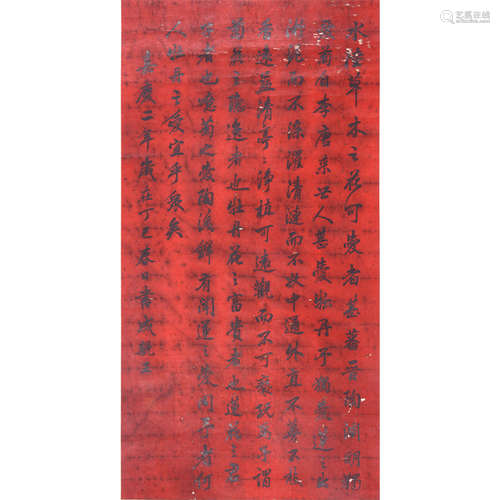 水陸草木之花可愛者甚蕃晉陶淵明獨
愛菊自李唐來世人甚愛牡丹予獨愛蓮之出
淤泥而不染濯清漣而不妖中通外直不蔓不枝
香遠益清亭〻淨植可遠觀而不可褻玩焉予謂
菊花之隱逸者也牡丹花之富貴者也蓮花之君
子者也噫菊之愛陶後鮮有聞蓮之愛同予者何
人牡丹之愛宜乎衆矣
嘉慶二年歲在丁巳春日書成親王